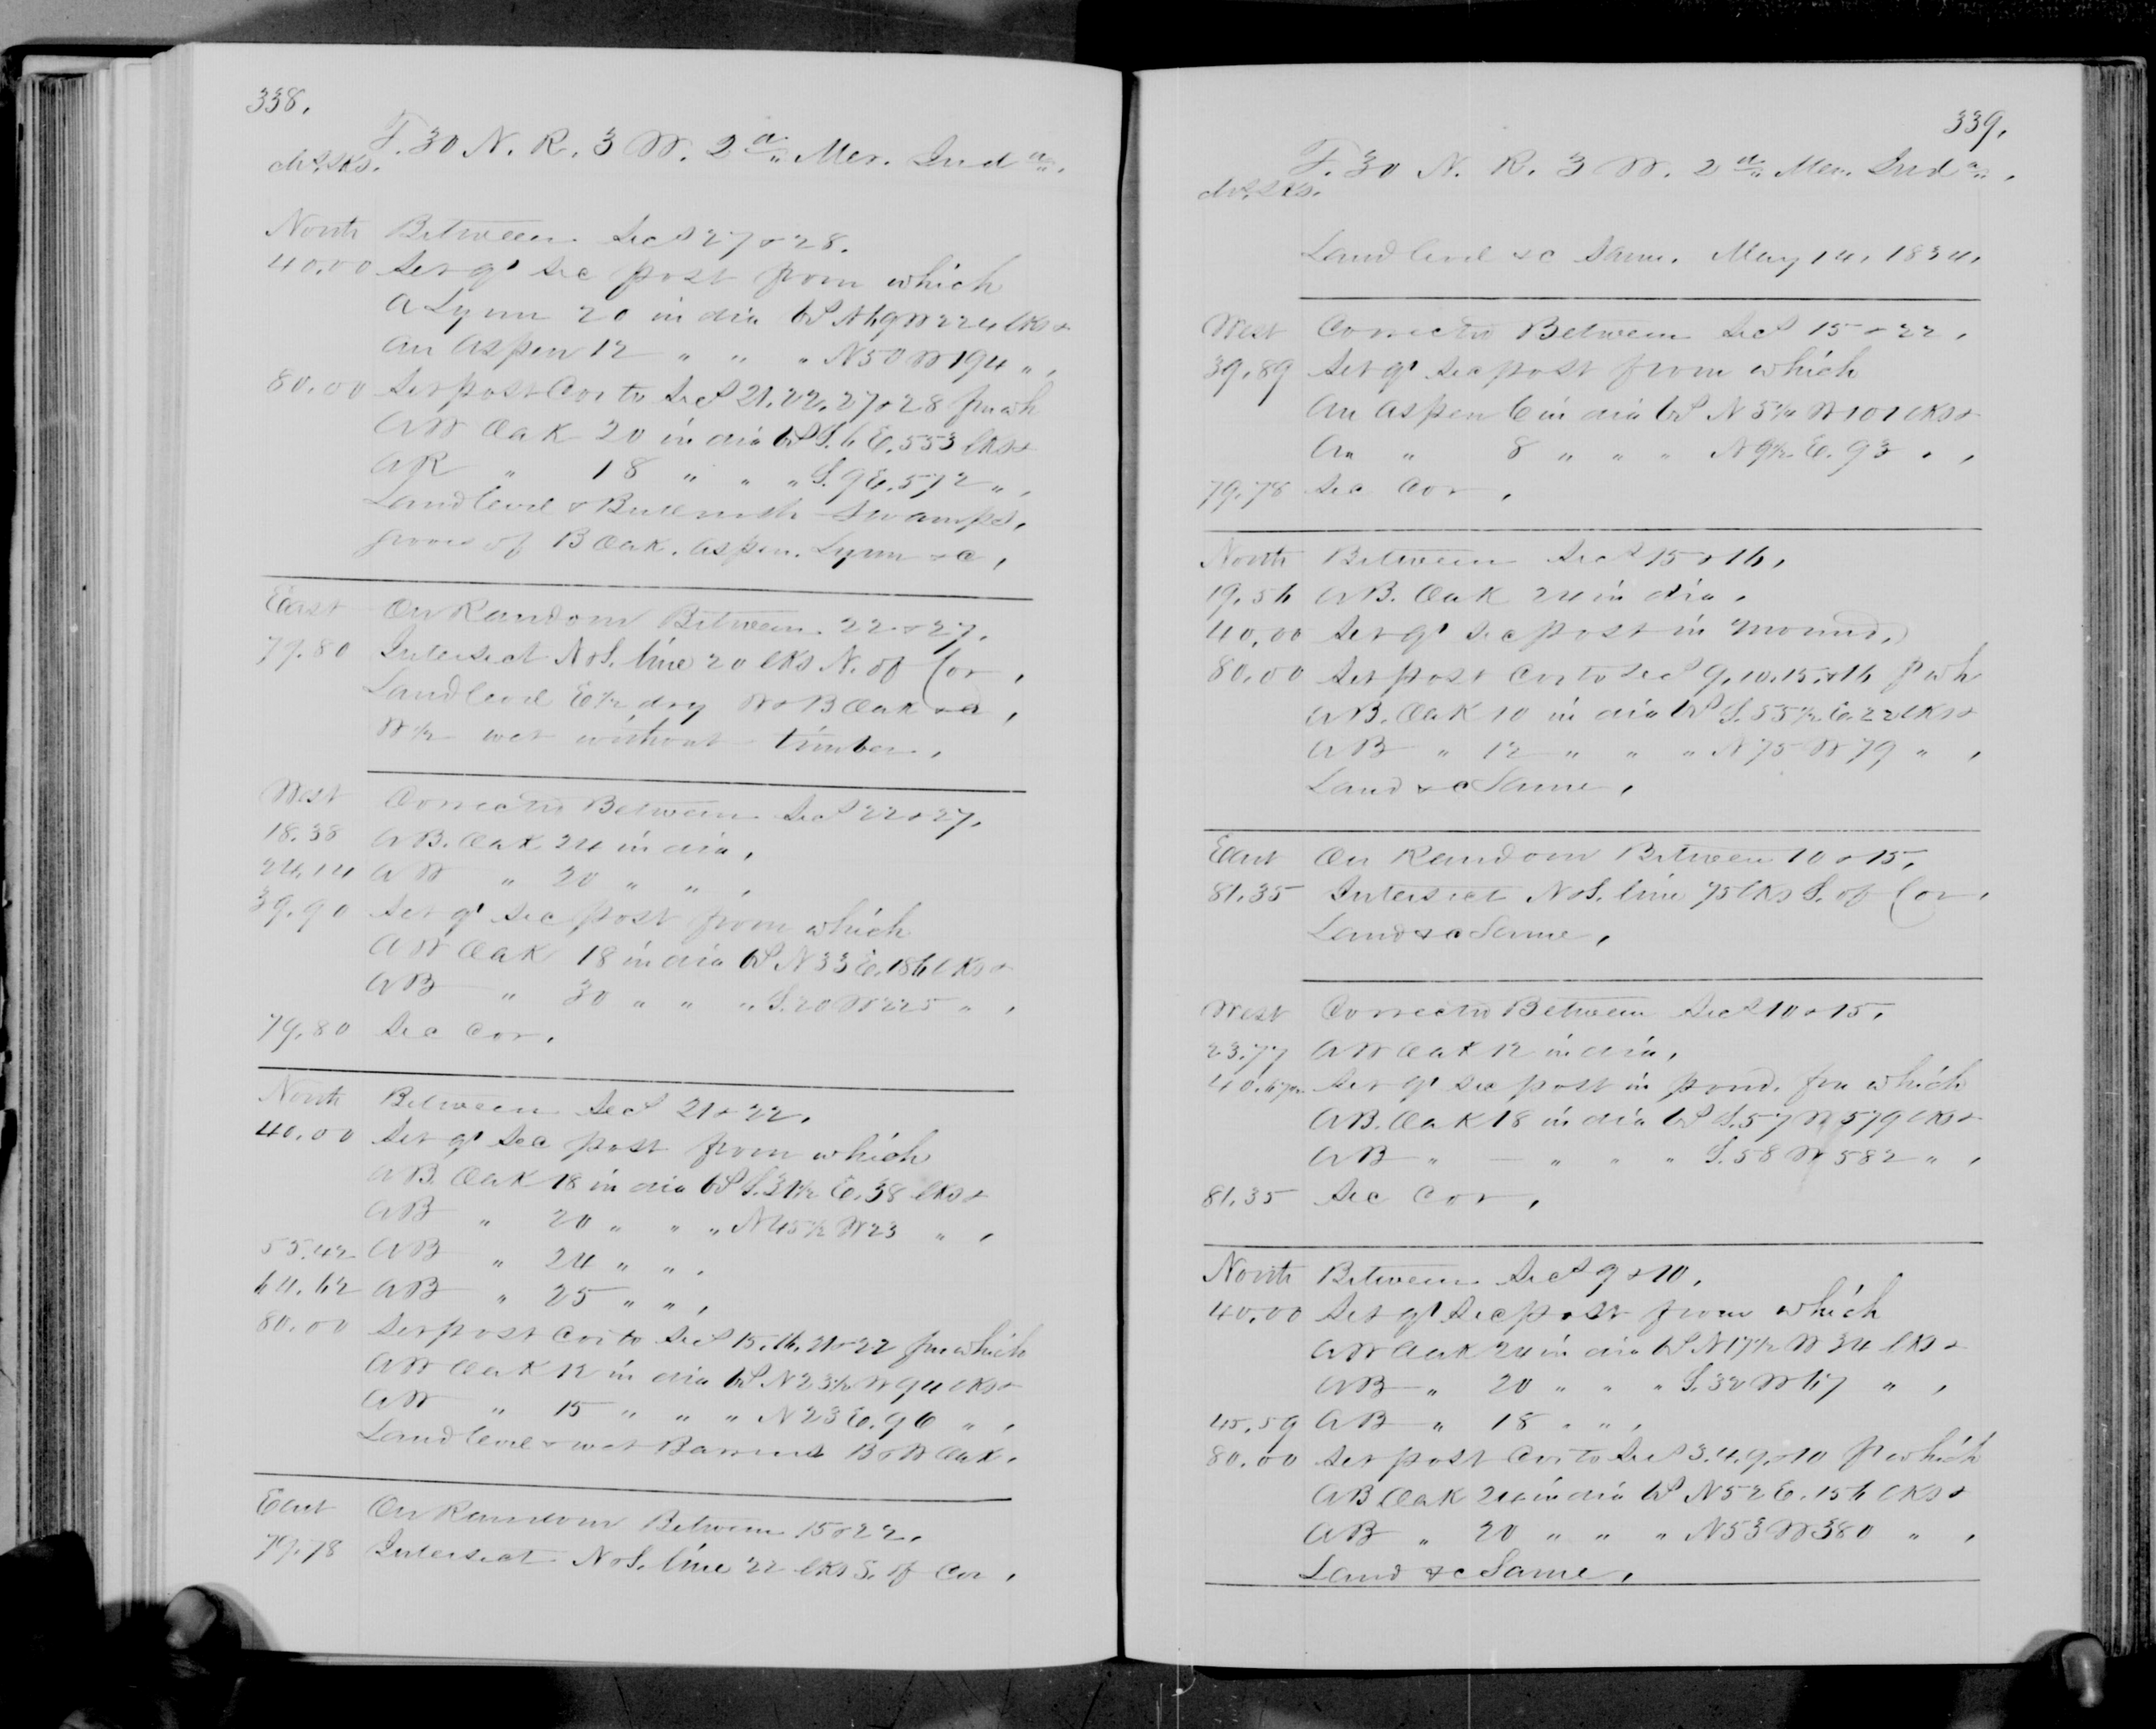 338.
T. 30 N. R. 3 W. 2d Mer. Inda.
chs. lks.
North Between Secs 27 & 28.
40.00 Set qr sec post from which
A Lynn 20 in dia brs N 69 W 224 lks &
An Aspen 12 " " " N 50 W 194 " ,
80.00 Set post Cor to Secs 21. 22. 27 & 28 fm wh
A W Oak 20 in dia brs S. 6 E. 553 lks &
A R " 18 " " " S. 9 E. 572 " ,
Land level & Bullrush Swamps,
groves of B Oak. Aspen. Lynn &c ,
East On Random Between 22 & 27,
79.80 Intersect N & S. line 20 lks N. of Cor ,
Land level E 1/2 dry W & B Oak &c ,
W 1/2 wet without timber ,
West Corrected Between Secs 22 & 27,
18.38 A B. Oak 24 in dia ,
24.14 A W " 20 " " ,
39.90 Set qr sec post from which
A W Oak 18 in dia brs N 33 E. 186 lks &
A B " 30 " " " S. 20 W 225 " ,
79.80 Sec Cor.
North Between Secs 21 & 22,
40.00 Set qr Sec post from which
A B. Oak 18 in dia brs S. 31 1/2 E. 38 lks &
A B " 20 " " " N 45 1/2 W 23 " ,
55.42 A B " 24 " " ,
64.62 A B " 25 " " ,
80.00 Set post Cor to Secs 15. 16. 21 & 22 fm which
A W Oak 12 in dia brs N 23 1/2 W 94 lks &
A W " 15 " " " N 23 E. 96 " ,
Land level & wet Barrens B & W Oak .
East On Random Between 15 & 22,
79.78 Intersect N & S. line 22 lks S. of Cor ,
339.
T. 30 N. R. 3 W. 2d Mer. Inda.
chs. lks.
Land level &c Same. May 14, 1834,
West Corrected Between Secs 15 & 22 ,
39.89 Set qr sec post from which
An Aspen 6 in dia brs N 5 1/4 W 101 lks &
An " 8 " " " N 9 1/2 E. 93 " ,
79.78 Sec Cor ,
North Between Secs 15 & 16,
19.56 A B. Oak 24 in dia ,
40.00 Set qr sec post in mound,
80.00 Set post Cor to Secs 9. 10. 15. & 16 f wh
A B. Oak 10 in dia brs S. 55 1/2 E. 22 lks &
A B " 12 " " " N 75 W 79 " ,
Land &c Same ,
East On Random Between 10 & 15,
81.35 Intersect N & S. line 75 lks S. of Cor ,
Land &c Same ,
West Corrected Between Secs 10 & 15,
23.77 A W Oak 12 in dia ,
40.67 1/2 Set qr sec post in pond. fm which
A B. Oak 18 in dia brs S. 57 W 579 lks &
A B " — " " " S. 58 W 582 " ,
81.35 Sec Cor ,
North Between Secs 9 & 10,
40.00 Set qr Sec post from which
A W Oak 24 in dia brs N 17 1/2 W 34 lks &
A B " 20 " " " S. 32 W 67 " ,
45.59 A B " 18 " " ,
80.00 Set post Cor to Secs 3. 4. 9. & 10 f which
A B Oak 24 in dia brs N 52 E. 156 lks &
A B " 20 " " " N 53 W 380 " ,
Land &c Same ,